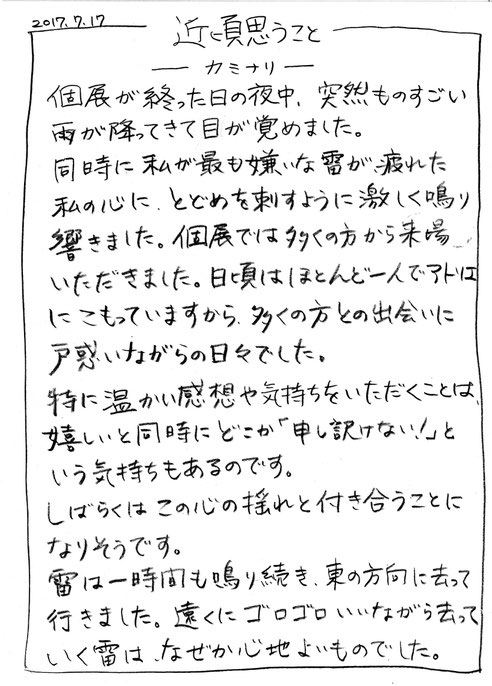 2017.7.17
近頃思うこと
― カミナリ ―
個展が終った日の夜中、突然ものすごい
雨が降ってきて目が覚めました。
同時に私が最も嫌いな雷が、疲れた
私の心に、とどめを刺すように激しく鳴り
響きました。個展では多くの方から来場
いただきました。日頃はほとんど一人でアトリエ
にこもっていますから、多くの方との出会いに
戸惑いながらの日々でした。
特に温かい感想や気持ちをいただくことは、
嬉しいと同時にどこか「申し訳けない!」と
いう気持ちもあるのです。
しばらくはこの心の揺れと付き合うことに
なりそうです。
雷は一時間も鳴り続き、東の方向に去って
行きました。遠くにゴロゴロいいながら去って
いく雷は、なぜか心地よいものでした。